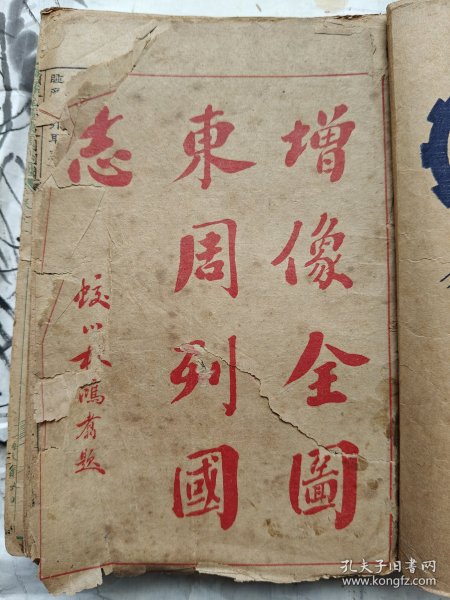 增像全圖
東周列國
志
蛟川
題
孔夫子旧书网
www.kongfz.com